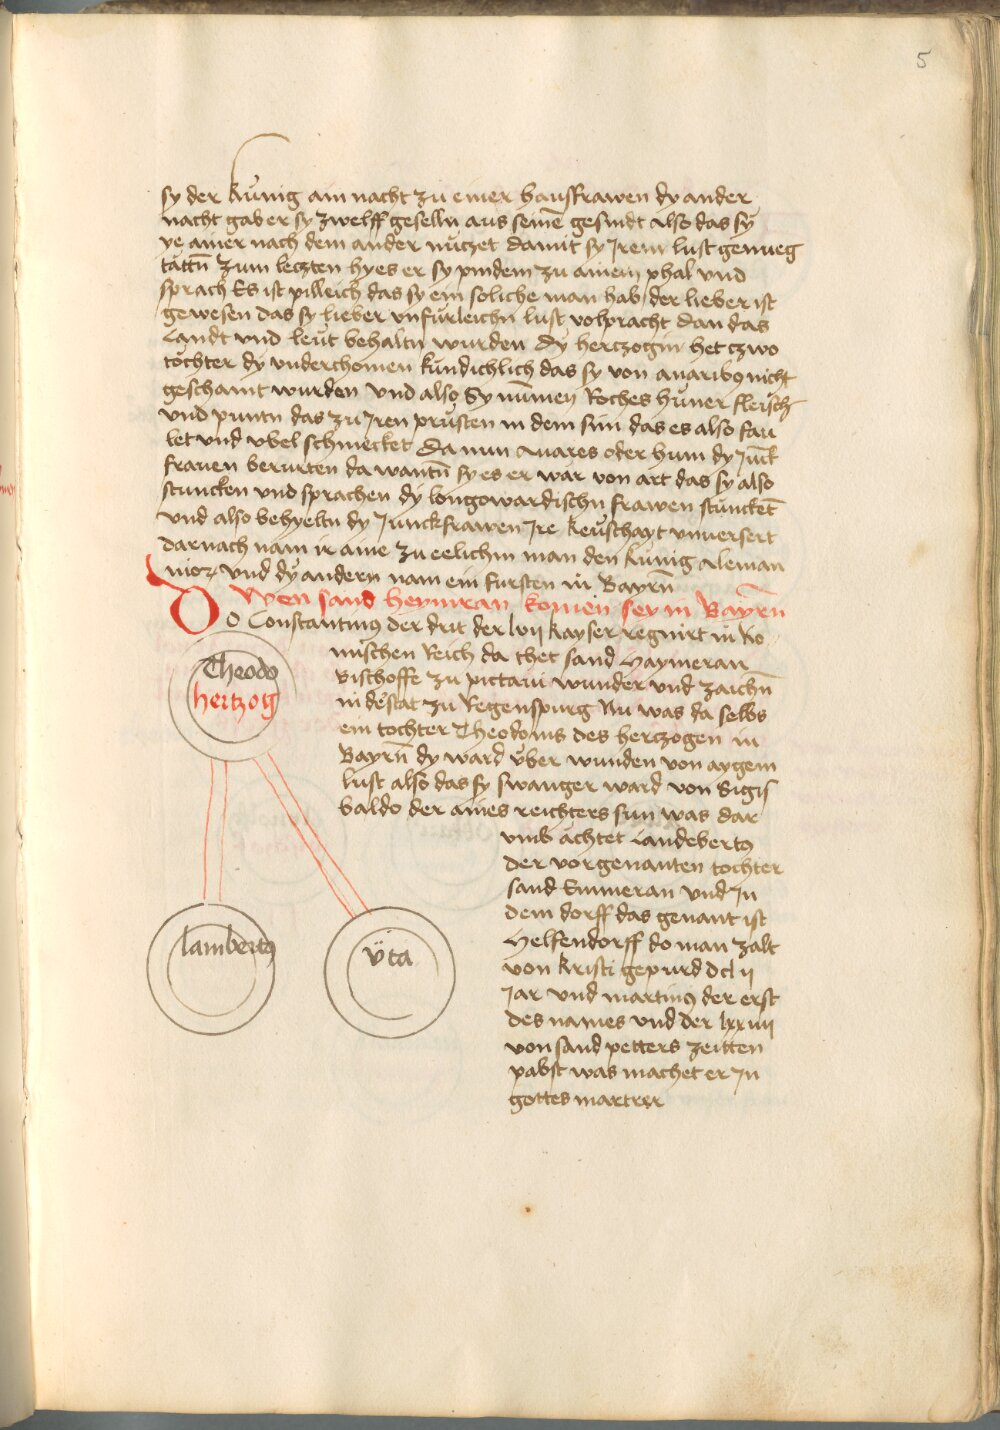 5
sy der kŭnig ain nacht zu einer hausfrawen dy ander
nacht gab er sy zwelff geselln aus seinē gesindt also das sy
ye ainer nach dem ander nŭczet damit sy Irem lust genueg
tättn̄ Zum leczten hyes er sy pinden zu ainem phal vnd
sprach Es ist pilleich das sy ein soliche man hab der lieber ist
gewesen das sy lieber vnfŭrleichn lust volpracht dan das
Landt vnd leŭt behaltn wurden Dy hertzogin het czwo
töchter dy vnderchomen kŭndichlich das sy von auaribꝰ nicht
geschamt wurden Vnd also Sy nūmen Roches hŭner fleisch
vnd puntn das zu Iren prŭsten in dem sin das es also fau
let vnd vbel schmecket Da nun Auares oder hunn dy Jūck
frauen berurten da wantn̄ sy es er wär von art das sy also
stuncken vnd sprachen dy longowardischn frawen stŭncket̄
Vnd also behyeltn dy Junckfrawen Ire keŭschayt vnuersert
Darnach nam ir aine zu eelichm man den kŭnig Aleman
nioꝝ vnd dy andern nam ein fursten in Bayrn̄
Wen sand heymran komen sey in Bayrn̄
Do Constantinꝰ der drit der lvii kayser regnirt in Ro
mischen Reich da thet sand Haymeran
Bischoffe zu pictaui wunder vnd zaichn̄
in de stat zu Regenspurg Nu was da selbs
ein tochter Theodonis des herczogen in
Bayrn̄ dy ward ŭber wunden von aygem
lust also das sy swanger ward von Sigis
baldo der aines reichters sun was dar
vmb ächtet Landebertꝰ
der vorgenanten tochter
sand Emmeran vnd In
dem dorff das genant ist
Helfendorff do man zalt
von kristi gepurd dclii
Jar vnd martinꝰ der erst
des names vnd der lxxiiii
von sand petters zeitten
pabst was machet er In
gottes martrer
Theodo
hertzog
lambertꝰ
vta